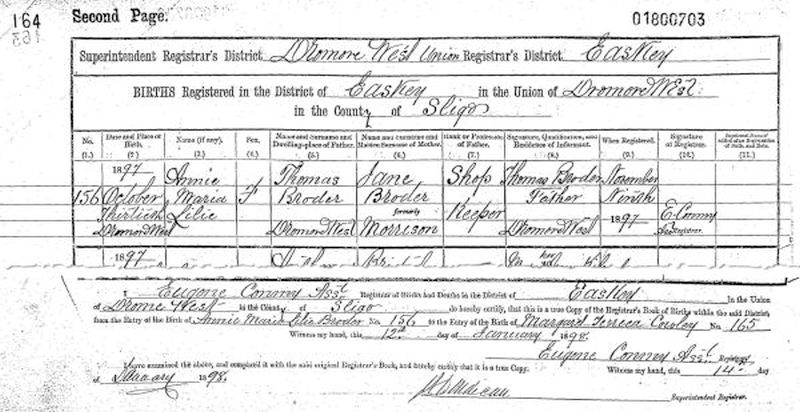 164
Second Page.
01800703
Superintendent Registrar's District Dromore West Union Registrar's District Easkey
BIRTHS Registered in the District of Easkey in the Union of Dromore West
in the County of Sligo
No. Date and Place of Birth. Name (if any). Sex. Name and Surname and Dwelling-place of Father. Name and Surname and Maiden Surname of Mother. Rank or Profession of Father. Signature, Qualification, and Residence of Informant. When Registered. Signature of Registrar.
(1.) (2.) (3.) (4.) (5.) (6.) (7.) (8.) (9.) (10.) (11.)
1897 Annie Thomas Jane Shop Thomas Broder November
156 October Maria F Broder Broder Keeper Father Ninth
Thirtieth Lilie formerly 1897 E Conmy
Dromore West Dromore West Morrison Dromore West Registrar.
1897
I Eugene Conmy Asst. Registrar of Births and Deaths in the District of Easkey in the Union
of Dromore West in the County of Sligo do hereby certify, that this is a true Copy of the Registrar's Book of Births within the said District,
from the Entry of the Birth of Annie Maria Lilie Broder No. 156 to the Entry of the Birth of Margaret Teresa No. 165
Witness my hand, this 12th day of January 1898.
Eugene Conmy Asst. Registrar
I have examined the above, and compared it with the said original Registrar's Book, and hereby certify that it is a true Copy. Witness my hand, this 14th day
of January 1898.
Superintendent Registrar.